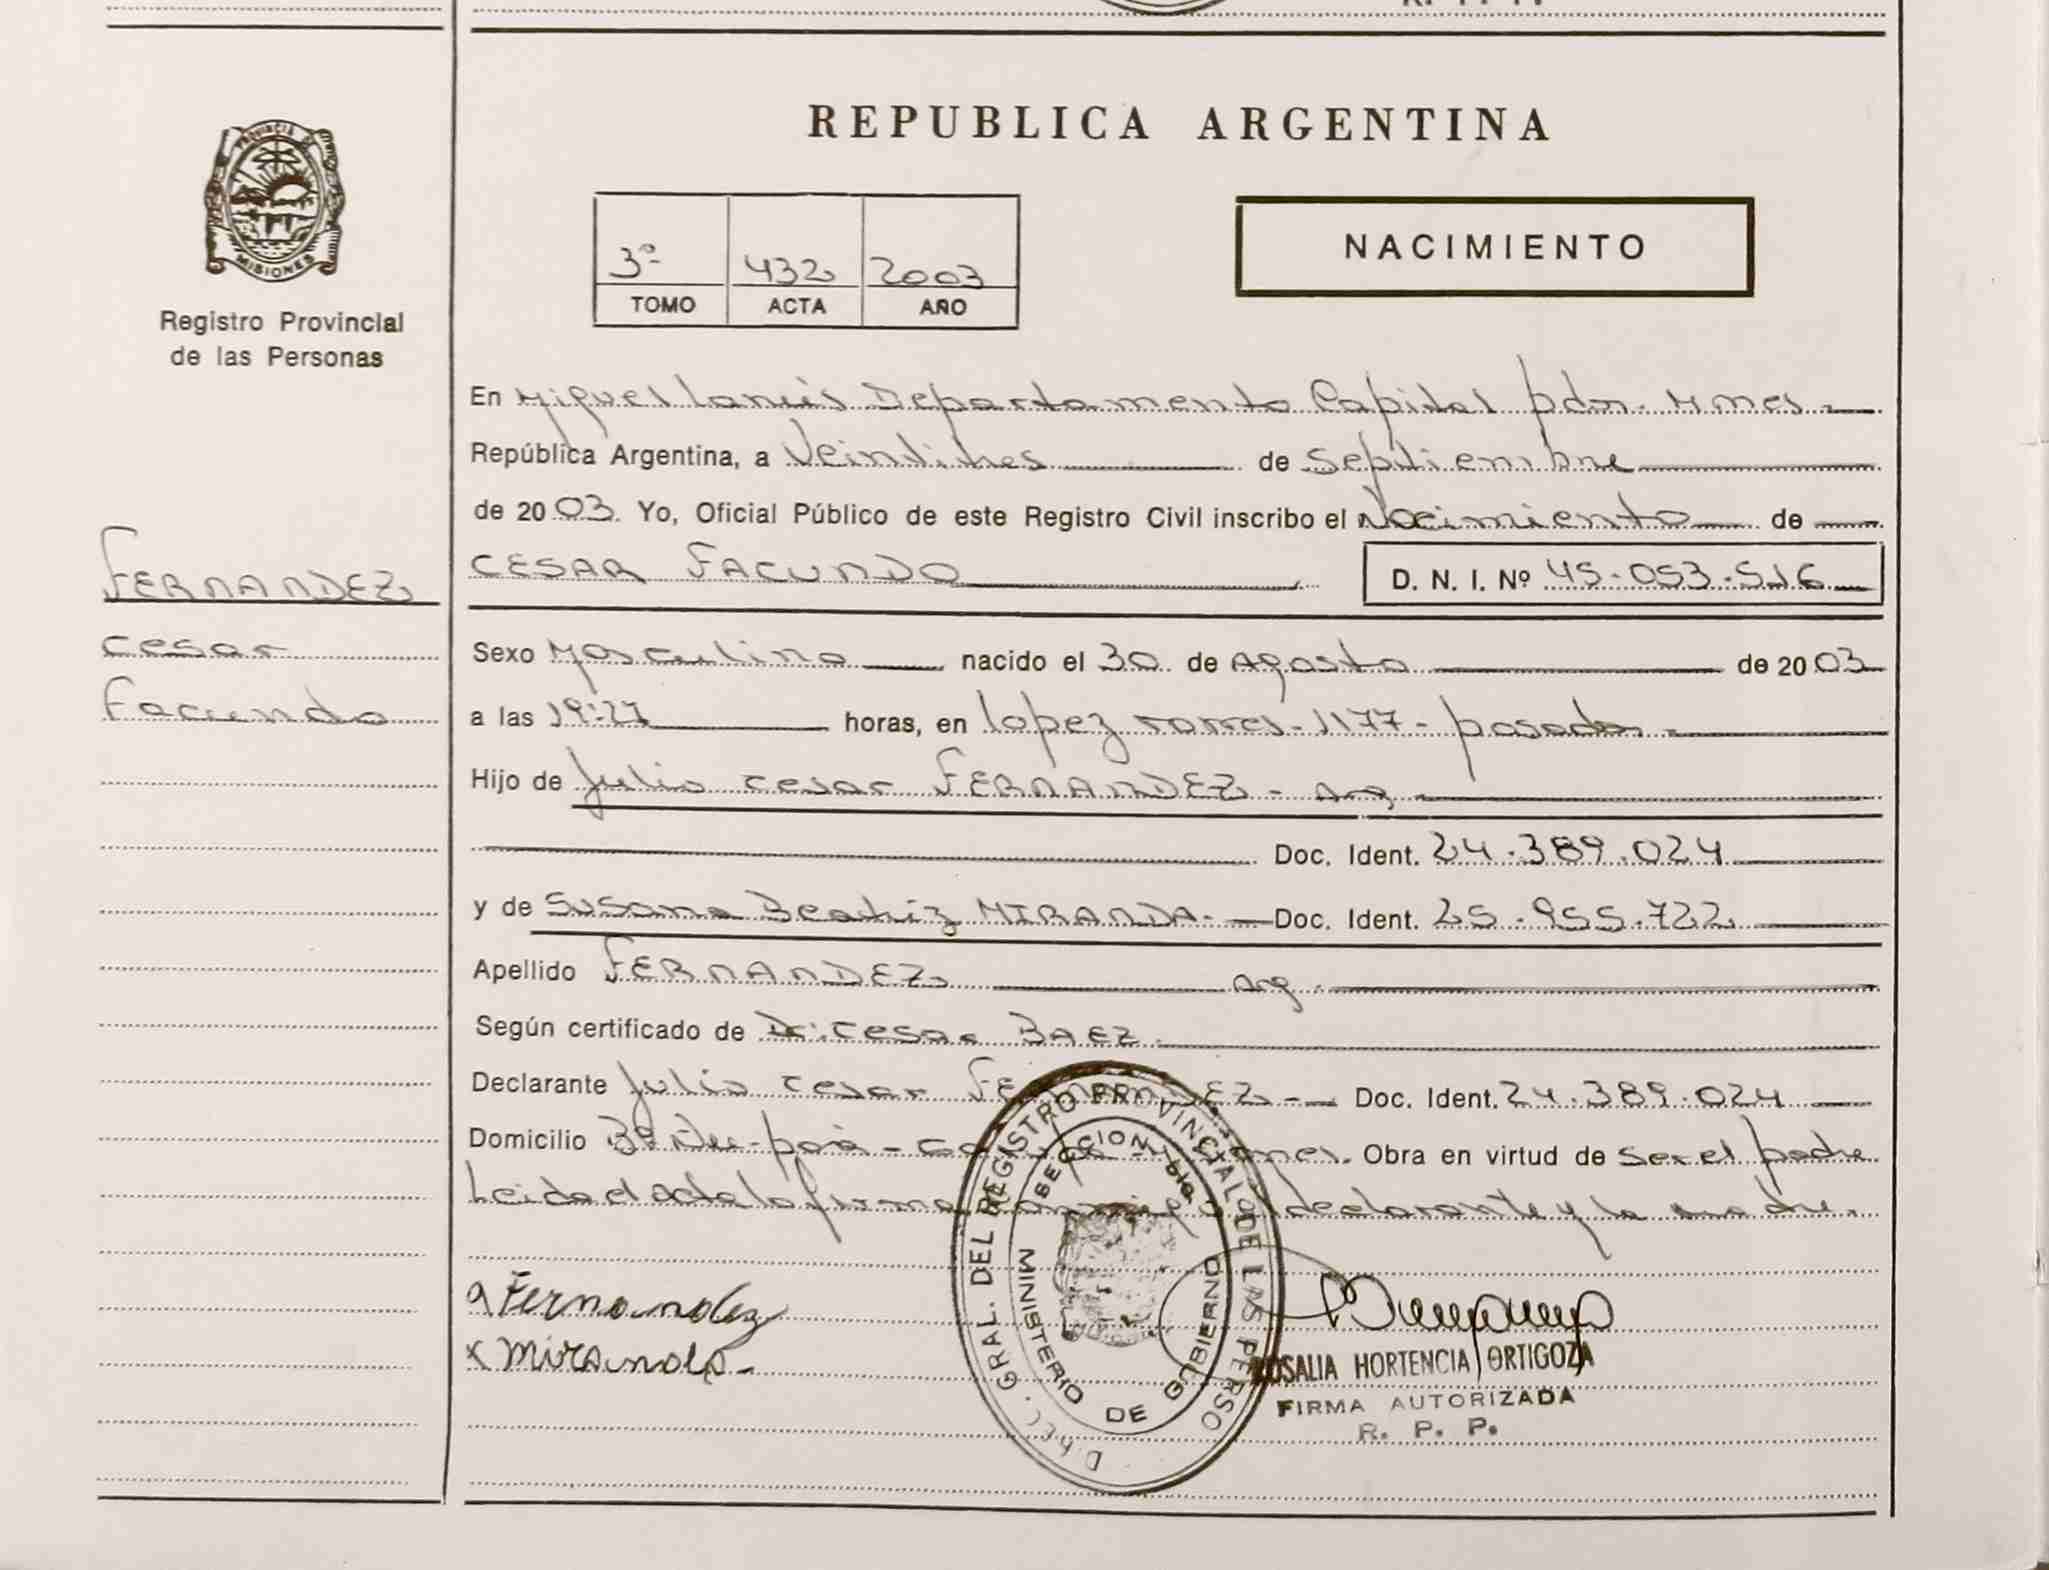 PROVINCIA DE
MISIONES
Registro Provincial
de las Personas
FERNANDEZ
Cesar
Facundo
REPUBLICA ARGENTINA
3º 432 2003
TOMO ACTA AÑO
NACIMIENTO
En Miguel Lanús Departamento Capital pdor. Mnes
República Argentina, a Veintitres de Septiembre
de 2003 Yo, Oficial Público de este Registro Civil inscribo el Nacimiento de
CESAR FACUNDO D. N. I. Nº 45.053.516
Sexo Masculino nacido el 30 de Agosto de 2003
a las 19:27 horas, en Lopez torres - 1177 - posadas
Hijo de Julio Cesar FERNANDEZ - arg
Doc. Ident. 24.389.024
y de Susana Beatriz MIRANDA - Doc. Ident. 25.955.722
Apellido FERNANDEZ arg.
Según certificado de Dr. Cesar BAEZ
Declarante Julio Cesar FERNANDEZ - Doc. Ident. 24.389.024
Domicilio Bº Ñu-porá - Obra en virtud de ser el padre
Leida el Acta la firma declarante y la madre.
Fernandez
x Miranda
DIREC. GRAL. DEL REGISTRO PROVINCIAL DE LAS PERSO
MINISTERIO DE GOBIERNO
ROSALIA HORTENCIA ORTIGOZA
FIRMA AUTORIZADA
R. P. P.